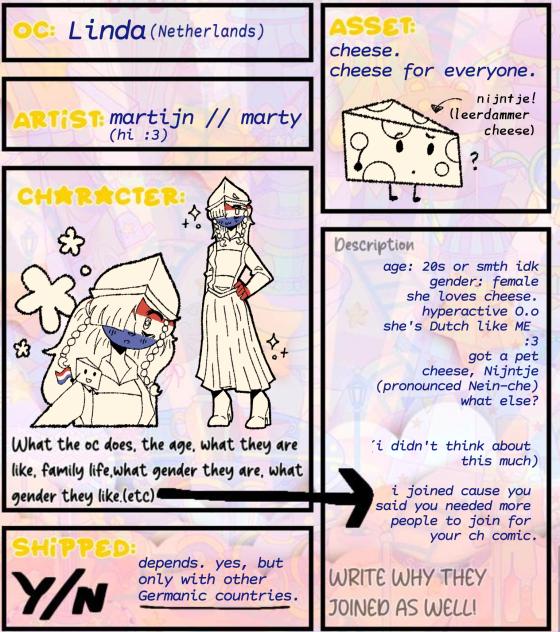 OC: Linda (Netherlands)
ARTIST: martijn // marty
(hi :3)
CHARACTER:
What the oc does, the age, what they are
like, family life,what gender they are, what
gender they like.(etc)
SHIPPED:
Y/N
depends. yes, but
only with other
Germanic countries.
ASSET:
cheese.
cheese for everyone.
nijntje!
(leerdammer
cheese)
?
Description
age: 20s or smth idk
gender: female
she loves cheese.
hyperactive O.o
she's Dutch like ME
:3
got a pet
cheese, Nijntje
(pronounced Nein-che)
what else?
(i didn't think about
this much)
i joined cause you
said you needed more
people to join for
your ch comic.
WRITE WHY THEY
JOINED AS WELL!